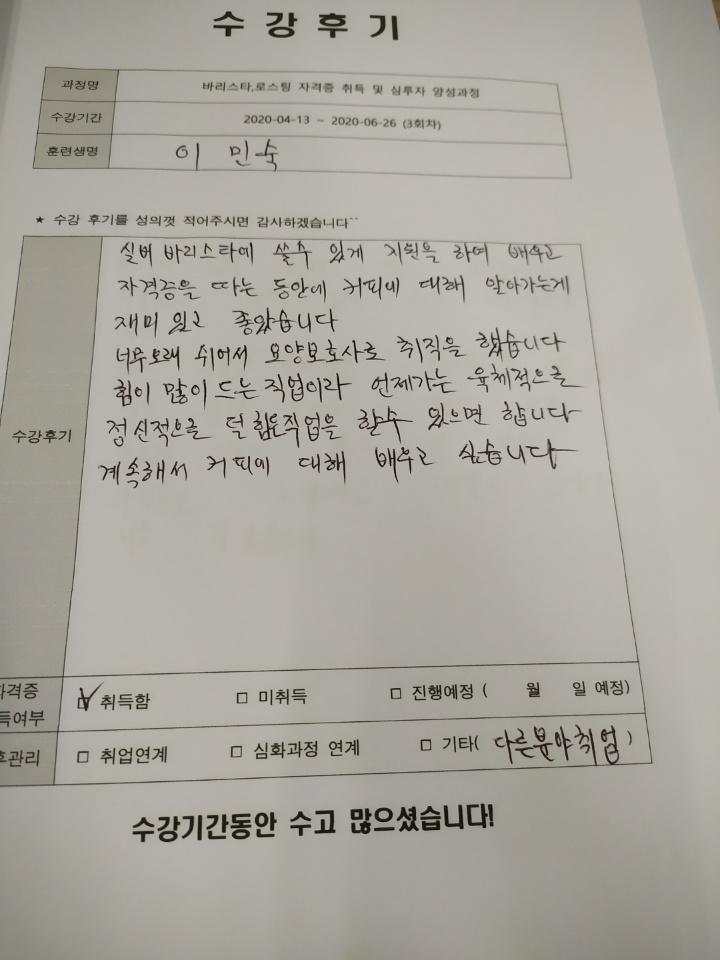 수강후기
과정명 바리스타,로스팅 자격증 취득 및 심루자 양성과정
수강기간 2020-04-13 ~ 2020-06-26 (3회차)
훈련생명 이 민숙
★ 수강 후기를 성의껏 적어주시면 감사하겠습니다^^
수강후기
실버 바리스타에 쓸수 있게 지원을 하여 배우고
자격증을 따는 동안에 커피에 대해 알아가는게
재미 있고 좋았습니다
너무오래 쉬어서 요양보호사로 취직을 했습니다
힘이 많이 드는 직업이라 언제가는 육체적으로
정신적으로 덜 힘든직업을 할수 있으면 합니다
계속해서 커피에 대해 배우고 싶습니다
자격증 취득함 □ 미취득 □ 진행예정 ( 월 일 예정)
득여부
후관리 □ 취업연계 □ 심화과정 연계 □ 기타( 다른분야취업 )
수강기간동안 수고 많으셨습니다!